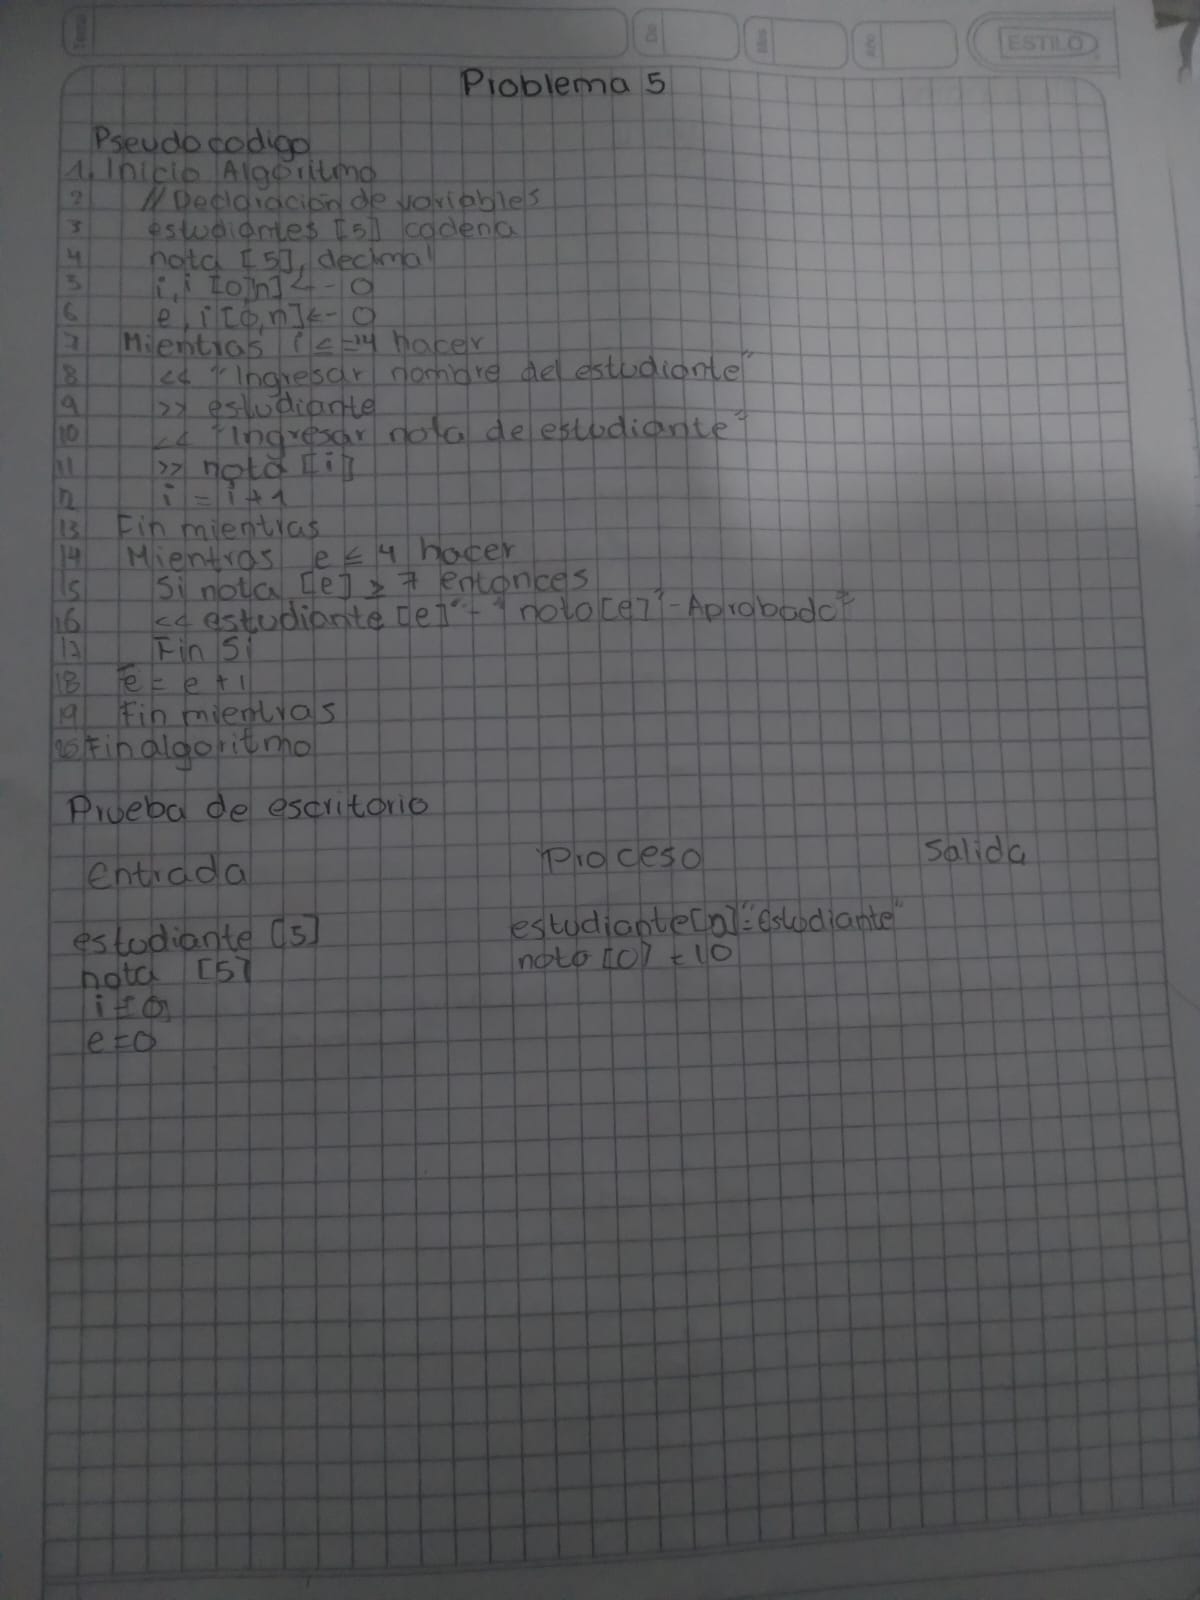 Tema
Día
Mes
Año
ESTILO
Problema 5
Pseudo codigo
1. Inicio Algoritmo
2 // Declaración de variables
3 estudiantes [5] cadena
4 nota [5], decimal
5 i, i [0,n] <- 0
6 e, i [0,n] <- 0
7 Mientras i <= 4 hacer
8 << "Ingresar nombre del estudiante"
9 >> estudiante
10 << "Ingresar nota de estudiante"
11 >> nota [i]
12 i = i + 1
13 Fin mientras
14 Mientras e ≤ 4 hacer
15 Si nota [e] ≥ 7 entonces
16 << estudiante [e] "-" nota [e] "-Aprobado"
17 Fin Si
18 e = e + 1
19 Fin mientras
20 Fin algoritmo
Prueba de escritorio
entrada Proceso Salida
estudiante [5] estudiante [n] = "estudiante"
nota [5] nota [0] = 10
i = 0
e = 0